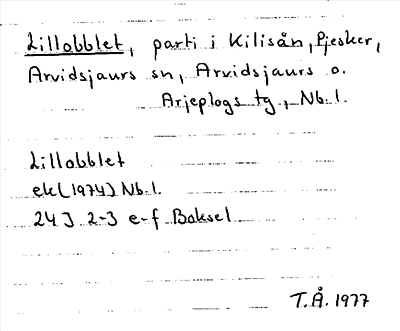 Lillobblet, parti i Kilisån, Pjesker,
Arvidsjaurs sn, Arvidsjaurs o.
Arjeplogs tg., Nb. l.
Lillobblet
ek (1974) Nb. l.
24J 2-3 e-f Baksel
T.Å. 1977